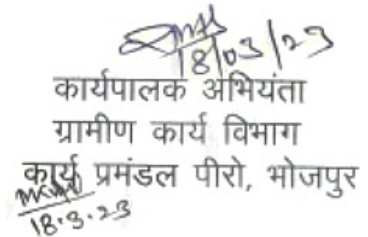 18/03/23
कार्यपालक अभियंता
ग्रामीण कार्य विभाग
कार्य प्रमंडल पीरो, भोजपुर
18.3.23